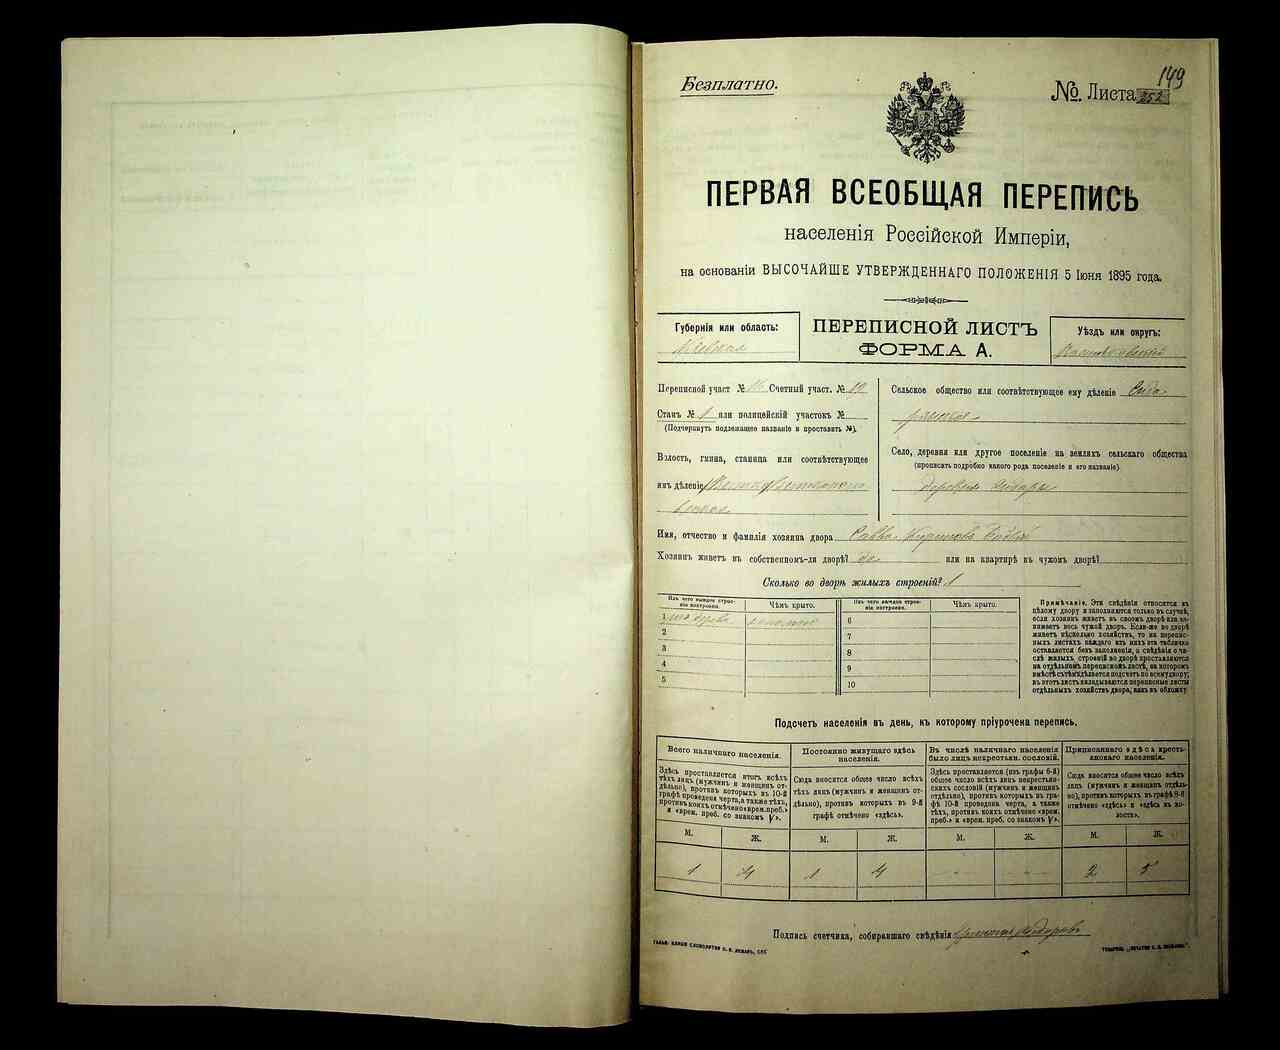 149
Безплатно.
№ Листа 252
ПЕРВАЯ ВСЕОБЩАЯ ПЕРЕПИСЬ
населенія Россійской Имперіи,
на основаніи ВЫСОЧАЙШЕ УТВЕРЖДЕННАГО ПОЛОЖЕНІЯ 5 Іюня 1895 года.
Губернія или область:
Кіевская
ПЕРЕПИСНОЙ ЛИСТЪ
ФОРМА А.
Уѣздъ или округъ:
Переписной участ № Счетный участ. № 19
Станъ № 1 или полицейскій участокъ №
(Подчеркнуть подлежащее названіе и проставить №).
Волость, гмина, станица или соотвѣтствующее
имъ дѣленіе
Сельское общество или соотвѣтствующее ему дѣленіе
Село, деревня или другое поселеніе на земляхъ сельскаго общества
(прописать подробно какого рода поселеніе и его названіе)
деревня
Имя, отчество и фамилія хозяина двора Савва
Хозяинъ живетъ въ собственномъ-ли дворѣ? да или на квартирѣ въ чужомъ дворѣ?
Сколько во дворѣ жилыхъ строеній? 1
Изъ чего каждое строеніе построено.
Чѣмъ крыто.
1 изъ дерева соломою
2
3
4
5
Изъ чего каждое строеніе построено.
Чѣмъ крыто.
6
7
8
9
10
Примѣчаніе. Эти свѣдѣнія относятся къ
цѣлому двору и заполняются только въ случаѣ,
если хозяинъ живетъ въ своемъ дворѣ или занимаетъ
весь чужой дворъ. Если-же во дворѣ
живетъ нѣсколько хозяйствъ, то на переписныхъ
листахъ каждаго изъ нихъ эта табличка
оставляется безъ заполненія, а свѣдѣнія о числѣ
жилыхъ строеній во дворѣ проставляются
на отдѣльномъ переписномъ листѣ, на которомъ
вмѣстѣ съ тѣмъ дѣлается подсчетъ по всему двору;
въ этотъ листъ вкладываются переписные листы
отдѣльныхъ хозяйствъ двора, какъ въ обложку.
Подсчетъ населенія въ день, къ которому пріурочена перепись.
Всего наличнаго населенія.
Здѣсь проставляется итогъ всѣхъ
тѣхъ лицъ (мужчинъ и женщинъ отдѣльно),
противъ которыхъ въ 10-й
графѣ проведена черта, а также тѣхъ,
противъ коихъ отмѣчено «врем. преб.»
и «врем. преб. со знакомъ V».
Постоянно живущаго здѣсь
населенія.
Сюда вносится общее число всѣхъ
тѣхъ лицъ (мужчинъ и женщинъ отдѣльно),
противъ которыхъ въ 9-й
графѣ отмѣчено «здѣсь».
Въ числѣ наличнаго населенія
было лицъ некрестьян. сословій.
Здѣсь проставляется (изъ графы 6-й)
общее число всѣхъ лицъ некрестьянскихъ
сословій (мужчинъ и женщинъ
отдѣльно), противъ которыхъ въ графѣ
10-й проведена черта, а также
тѣхъ, противъ коихъ отмѣчено «врем.
преб.» и «врем. преб. со знакомъ V».
Приписаннаго здѣсь крестьянскаго населенія.
Сюда вносится общее число всѣхъ
лицъ (мужчинъ и женщинъ отдѣльно),
противъ которыхъ въ графѣ 8-й
отмѣчено «здѣсь» и «здѣсь въ волости».
М. Ж. М. Ж. М. Ж. М. Ж.
1 4 1 4 - - 2 5
Подпись счетчика, собиравшаго свѣдѣнія